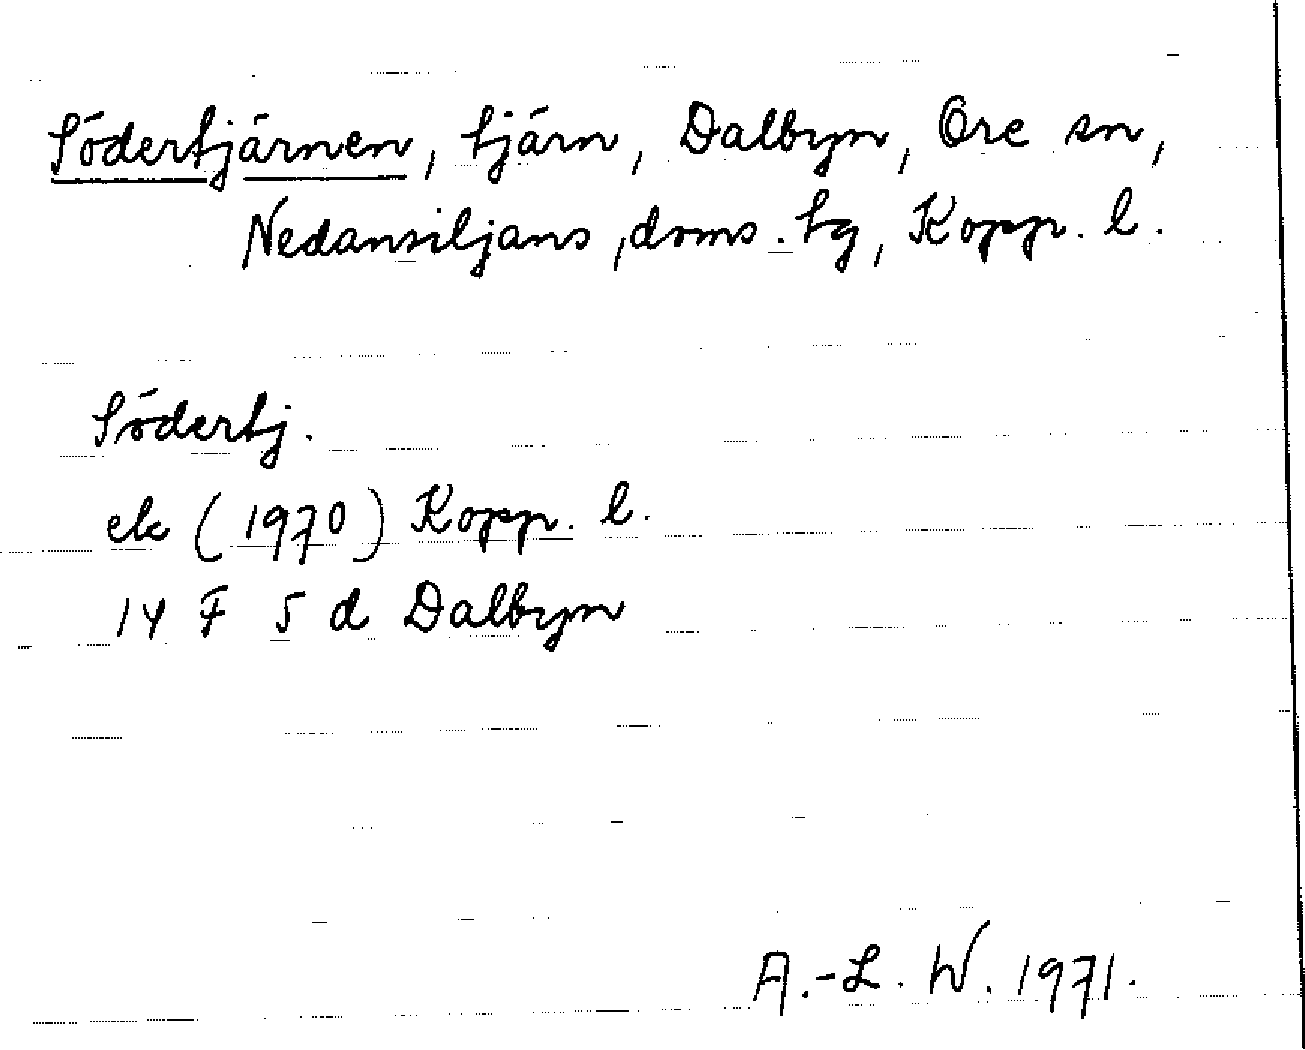 Södertjärnen, tjärn, Dalbyn, Ore sn,
Nedansiljans, doms. tg, Kopp. l.
Södertj.
ek (1970) Kopp. l.
14 F 5 d Dalbyn
A.-L. W. 1971.